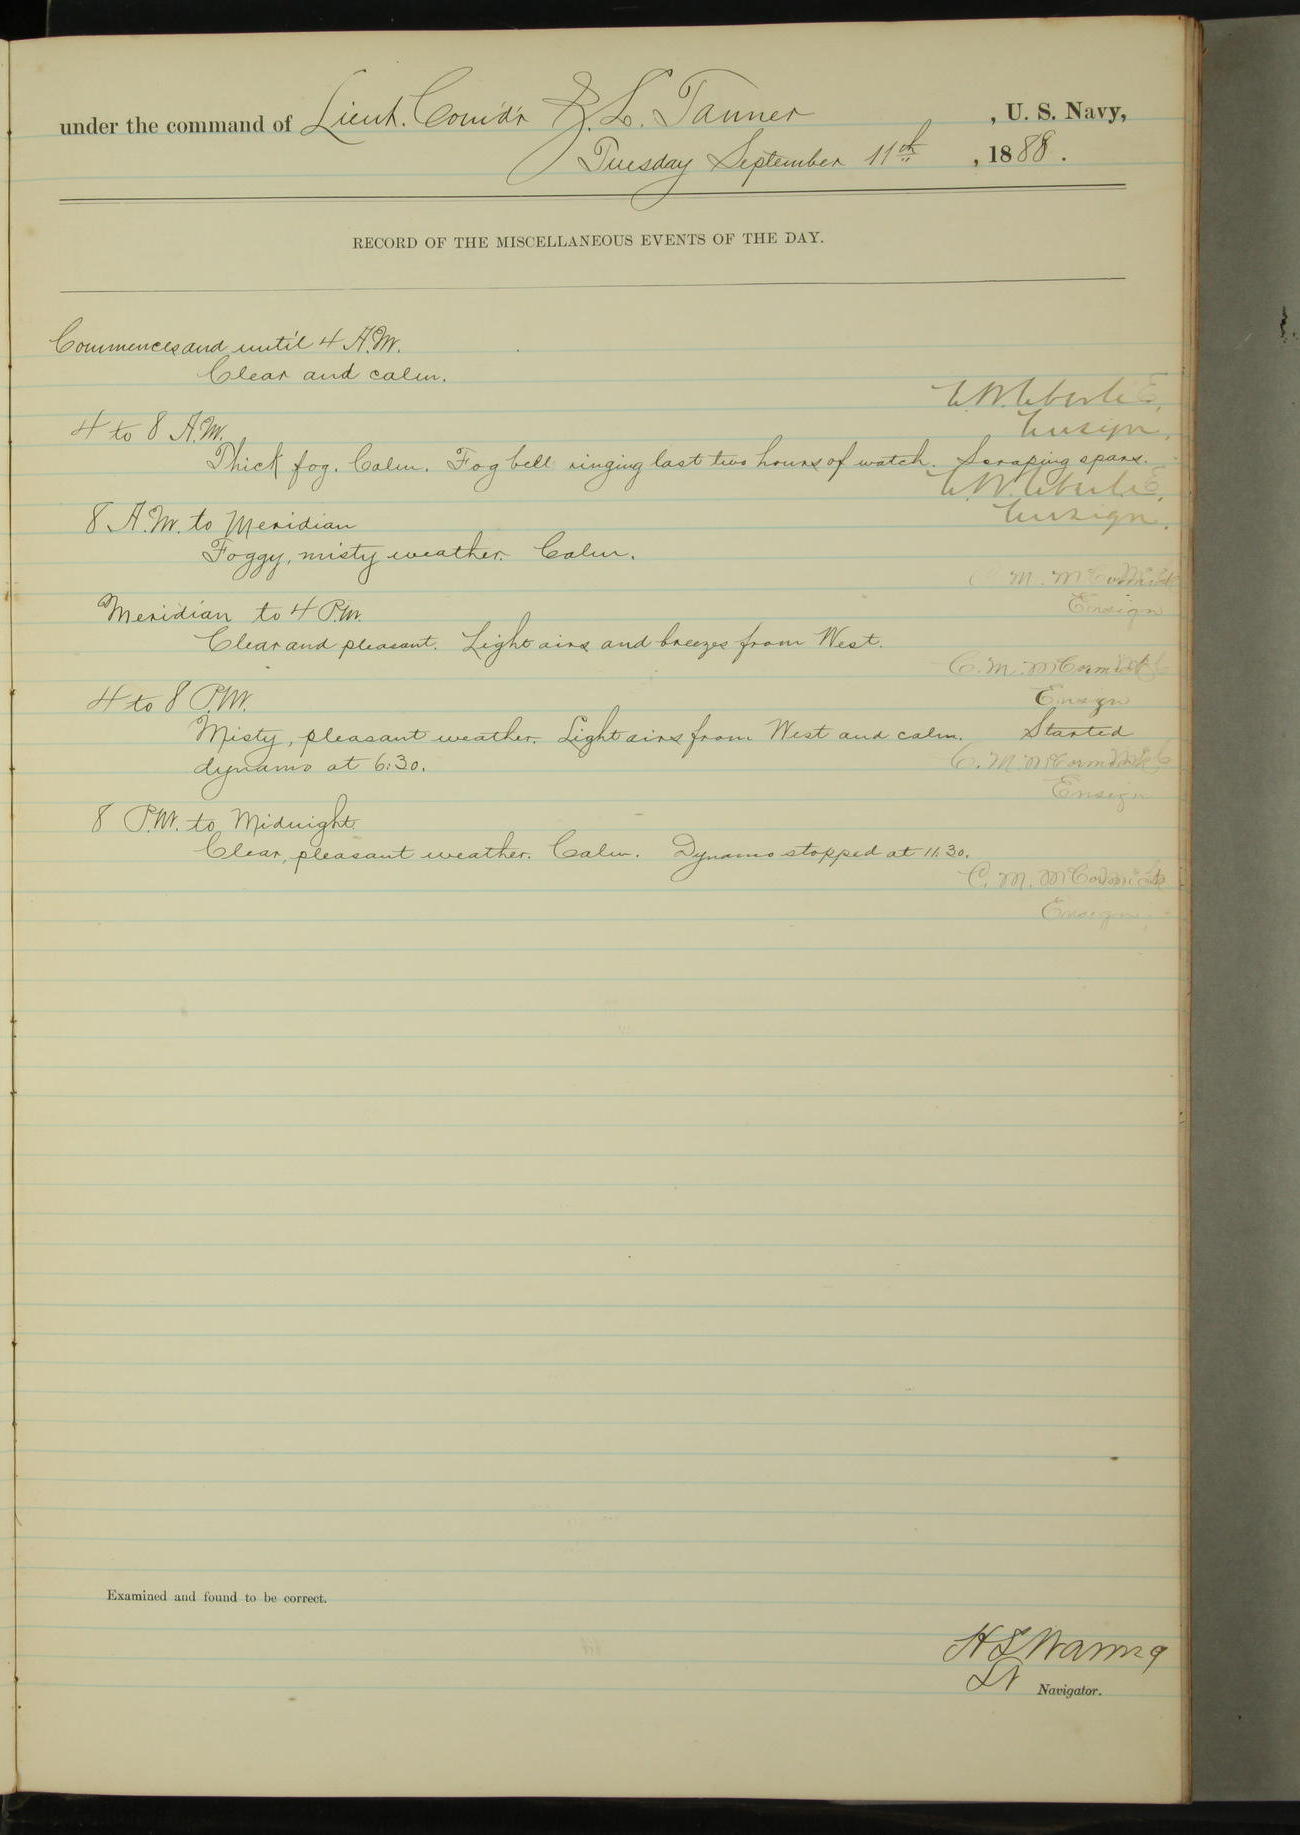 under the command of Lieut. Com'd'r Z. L. Tanner, U. S. Navy,
Tuesday September 11th, 1888.
RECORD OF THE MISCELLANEOUS EVENTS OF THE DAY.
Commences and until 4 A.M.
Clear and calm.
E. W. Eberle,
Ensign,
4 to 8 A.M.
Thick fog. Calm. Fog bell ringing last two hours of watch. Scraping spars.
E. W. Eberle,
Ensign.
8 A.M. to Meridian
Foggy, misty weather. Calm.
C. M. McCormick
Ensign
Meridian to 4 P.M.
Clear and pleasant. Light airs and breezes from West.
C. M. McCormick
Ensign
4 to 8 P.M.
Misty, pleasant weather. Light airs from West and calm. Started
dynamo at 6:30.
C. M. McCormick
Ensign
8 P.M. to Midnight
Clear, pleasant weather. Calm. Dynamo stopped at 11.30.
C. M. McCormick
Ensign
Examined and found to be correct.
H S Waring
Lt Navigator.